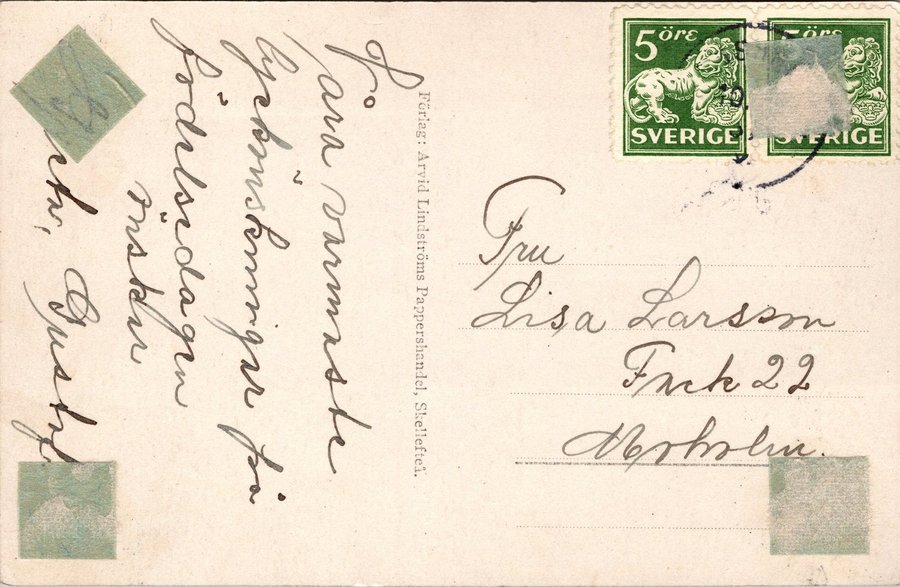 Våra varmaste
lyckönskningar på
födelsedagen
önskar
Gustaf
Förlag: Arvid Lindströms Pappershandel, Skellefteå.
5 öre
SVERIGE
5 öre
SVERIGE
Fru
Lisa Larsson
Fack 22
Moholm.